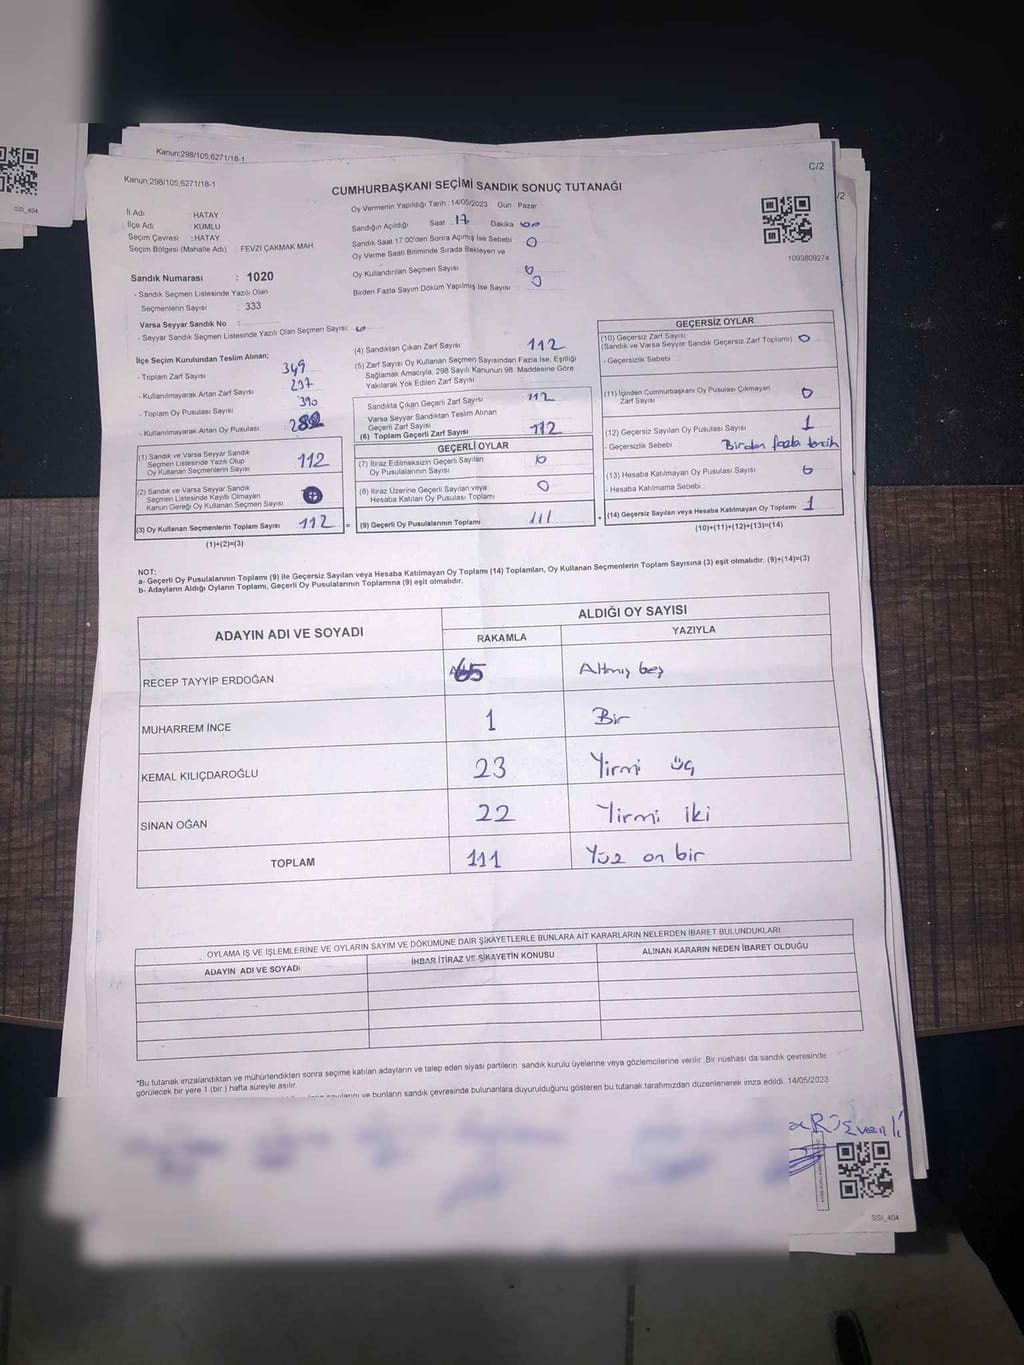 Kanun:298/105,6271/18-1
Kanun:298/105,6271/18-1
C/2
/2
SSİ_404
CUMHURBAŞKANI SEÇİMİ SANDIK SONUÇ TUTANAĞI
1093809274
İl Adı HATAY
İlçe Adı KUMLU
Seçim Çevresi :HATAY
Seçim Bölgesi (Mahalle Adı) : FEVZİ ÇAKMAK MAH
Sandık Numarası : 1020
- Sandık Seçmen Listesinde Yazılı Olan
Seçmenlerin Sayısı : 333
Varsa Seyyar Sandık No :
- Seyyar Sandık Seçmen Listesinde Yazılı Olan Seçmen Sayısı:
Oy Vermenin Yapıldığı Tarih : 14/05/2023 Gün : Pazar
Sandığın Açıldığı Saat 17 Dakika 00
Sandık Saat 17:00'den Sonra Açılmış İse Sebebi 0
Oy Verme Saati Bitiminde Sırada Bekleyen ve
Oy Kullandırılan Seçmen Sayısı 0
Birden Fazla Sayım Döküm Yapılmış İse Sayısı : 0
İlçe Seçim Kurulundan Teslim Alınan;
- Toplam Zarf Sayısı 349
- Kullanılmayarak Artan Zarf Sayısı 237
- Toplam Oy Pusulası Sayısı 390
- Kullanılmayarak Artan Oy Pusulası
(1) Sandık ve Varsa Seyyar Sandık
Seçmen Listesinde Yazılı Olup
Oy Kullanan Seçmenlerin Sayısı 112
(2) Sandık ve Varsa Seyyar Sandık
Seçmen Listesinde Kayıtlı Olmayan
Kanun Gereği Oy Kullanan Seçmen Sayısı
(3) Oy Kullanan Seçmenlerin Toplam Sayısı 112 =
(1)+(2)=(3)
(4) Sandıktan Çıkan Zarf Sayısı 112
(5) Zarf Sayısı Oy Kullanan Seçmen Sayısından Fazla İse, Eşitliği
Sağlamak Amacıyla; 298 Sayılı Kanunun 98. Maddesine Göre
Yakılarak Yok Edilen Zarf Sayısı
Sandıkta Çıkan Geçerli Zarf Sayısı 112
Varsa Seyyar Sandıktan Teslim Alınan
Geçerli Zarf Sayısı
(6) Toplam Geçerli Zarf Sayısı 112
GEÇERLİ OYLAR
(7) İtiraz Edilmeksizin Geçerli Sayılan
Oy Pusulalarının Sayısı
(8) İtiraz Üzerine Geçerli Sayılan veya
Hesaba Katılan Oy Pusulası Toplamı 0
(9) Geçerli Oy Pusulalarının Toplamı 111 +
GEÇERSİZ OYLAR
(10) Geçersiz Zarf Sayısı
(Sandık ve Varsa Seyyar Sandık Geçersiz Zarf Toplamı) 0
- Geçersizlik Sebebi
(11) İçinden Cumhurbaşkanı Oy Pusulası Çıkmayan
Zarf Sayısı 0
(12) Geçersiz Sayılan Oy Pusulası Sayısı 1
- Geçersizlik Sebebi Birden fazla tercih
(13) Hesaba Katılmayan Oy Pusulası Sayısı 0
- Hesaba Katılmama Sebebi
(14) Geçersiz Sayılan veya Hesaba Katılmayan Oy Toplamı 1
(10)+(11)+(12)+(13)=(14)
NOT:
a- Geçerli Oy Pusulalarının Toplamı (9) ile Geçersiz Sayılan veya Hesaba Katılmayan Oy Toplamı (14) Toplamları, Oy Kullanan Seçmenlerin Toplam Sayısına (3) eşit olmalıdır. (9)+(14)=(3)
b- Adayların Aldığı Oyların Toplamı, Geçerli Oy Pusulalarının Toplamına (9) eşit olmalıdır.
ADAYIN ADI VE SOYADI ALDIĞI OY SAYISI
RAKAMLA YAZIYLA
RECEP TAYYİP ERDOĞAN 65 Altmış beş
MUHARREM İNCE 1 Bir
KEMAL KILIÇDAROĞLU 23 Yirmi üç
SİNAN OĞAN 22 Yirmi iki
TOPLAM 111 Yüz on bir
OYLAMA İŞ VE İŞLEMLERİNE VE OYLARIN SAYIM VE DÖKÜMÜNE DAİR ŞİKAYETLERLE BUNLARA AİT KARARLARIN NELERDEN İBARET BULUNDUKLARI
ADAYIN ADI VE SOYADI İHBAR İTİRAZ VE ŞİKAYETİN KONUSU ALINAN KARARIN NEDEN İBARET OLDUĞU
*Bu tutanak imzalandıktan ve mühürlendikten sonra seçime katılan adayların ve talep eden siyasi partilerin sandık kurulu üyelerine veya gözlemcilerine verilir. Bir nüshası da sandık çevresinde
görülecek bir yere 1 (bir ) hafta süreyle asılır.
ve bunların sandık çevresinde bulunanlara duyurulduğunu gösteren bu tutanak tarafımızdan düzenlenerek imza edildi. 14/05/2023
SSİ_404